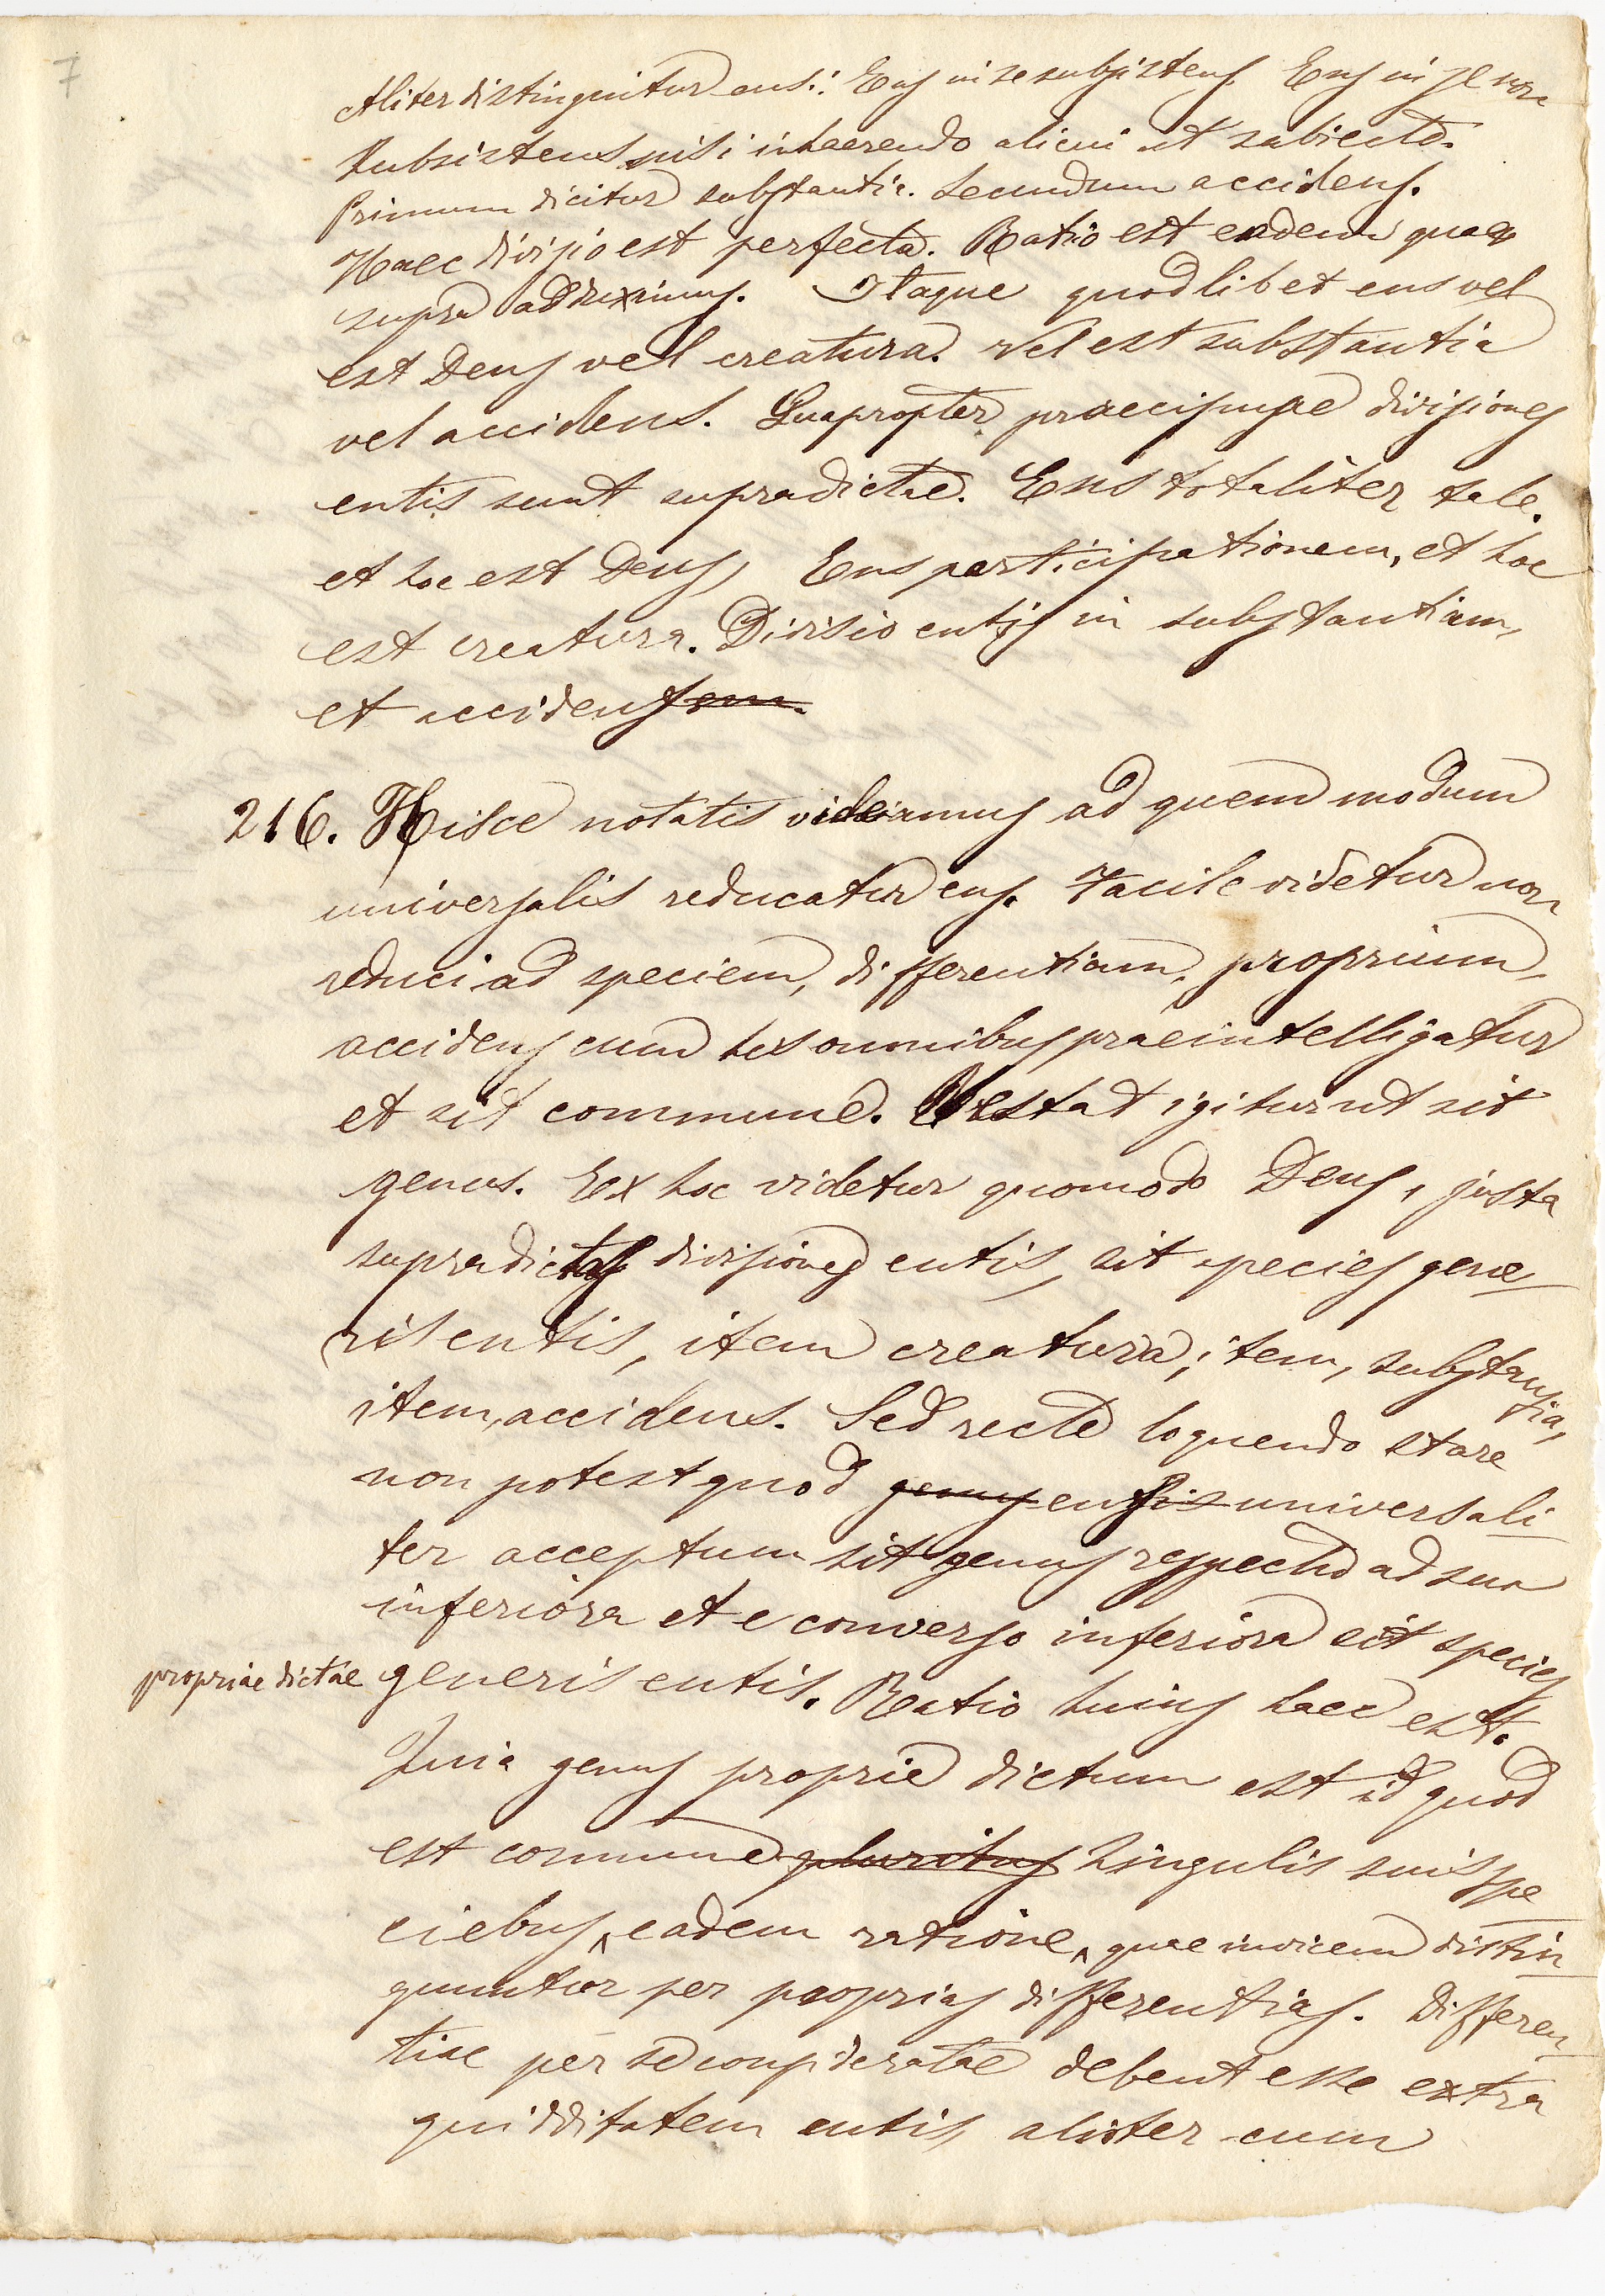 7
Aliter distinguitur ens: Ens in se subsistens. Ens in se non
subsistens nisi inhaerendo alicui ut subiecto.
Primum dicitur substantia. Secundum accidens.
Haec divisio est perfecta. Ratio est eadem quae
supra adduximus. Itaque quodlibet ens vel
est Deus vel creatura. Vel est substantia
vel accidens. Quapropter praecipuae divisiones
entis sunt supradictae. Ens totaliter tale.
et hoc est Deus, Ens participationem, et hoc
est creatura. Divisio entis in substantiam,
et accidens
216. Hisce notatis videamus ad quem modum
universalis reducatur ens. Facile videtur non
reduci ad speciem, differentiam, proprium,
accidens cum his omnibus praeintelligatur
et sit commune. Restat igitur ut sit
genus. Ex hoc videtur quomodo Deus, justa
supradictas divisiones entis, sit species gene
ris entis, item creatura, item, substantia,
item, accidens. Sed recte loquendo stare
non potest quod genus ens universali
ter acceptum sit genus respectu ad sua
inferiora et e converso inferiora sit species
propriae dictae generis entis. Ratio huius haec est.
Quia genus proprie dictum est id quod
est commune singulis suis spe
ciebus, eadem ratione, quae invicem distin
guuntur per proprias differentias. Differen
tiae per se consideratae debent esse extra
quidditatem entis, aliter cum